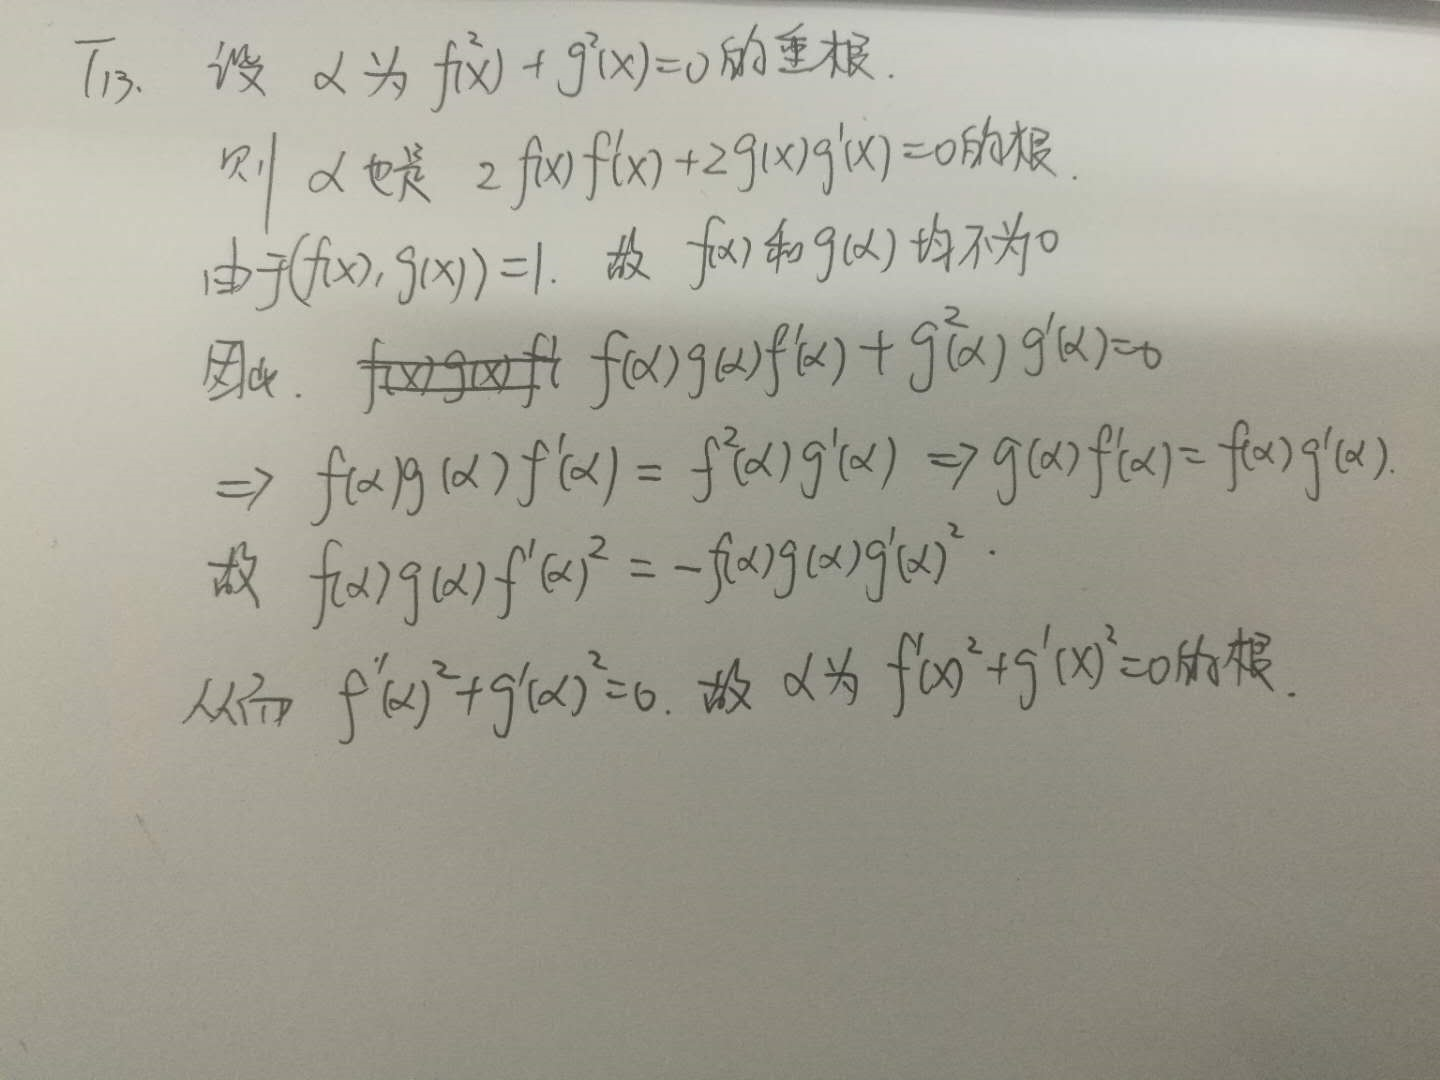 T13. 设 α 为 f²(x) + g²(x)=0 的重根.
则 α 也是 2f(x)f'(x)+2g(x)g'(x)=0的根.
由于(f(x), g(x))=1. 故 f(α) 和 g(α) 均不为0
因此. f(α)g(α)f'(α) + g²(α)g'(α)=0
⇒ f(α)g(α)f'(α) = f²(α)g'(α) ⇒ g(α)f'(α) = f(α)g'(α).
故 f(α)g(α)f'(α)² = -f(α)g(α)g'(α)².
从而 f'(α)²+g'(α)²=0. 故 α 为 f'(x)²+g'(x)²=0的根.